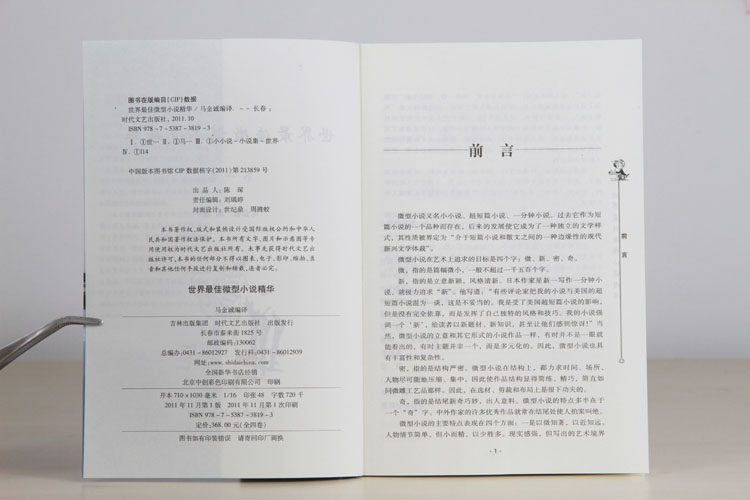 图书在版编目(CIP)数据
世界最佳微型小说精华 / 马金诚编译. -- 长春 :
时代文艺出版社, 2011.10
ISBN 978-7-5387-3819-3
Ⅰ.①世… Ⅱ.①马… Ⅲ.①小小说-小说集-世界
Ⅳ.①I14
中国版本图书馆CIP数据核字(2011)第213859号
出 品 人:陈 琛
责任编辑:刘瑀婷
封面设计:世纪鼎 周腾蛟
本书著作权、版式和装帧设计受国际版权公约和中华人
民共和国著作权法保护。本书所有文字、图片和示意图等专
用使用权为时代文艺出版社所有。未事先获得时代文艺出版
社许可,本书的任何部分不得以图表、电子、影印、缩拍、录
音和其他任何手段进行复制和转载,违者必究。
世界最佳微型小说精华
马金诚编译
吉林出版集团 时代文艺出版社 出版发行
长春市泰来街1825号
邮政编码:130062
总编办:0431-86012927 发行科:0431-86012939
网址:www.shidaichina.com
全国新华书店经销
北京中创彩色印刷有限公司 印刷
开本 710×1030毫米 1/16 印张 48 字数 720千
2011年11月第1版 2011年11月第1次印刷
ISBN 978-7-5387-3819-3
定价:368.00元(全四卷)
图书如有印装错误 请寄回印厂调换
前 言
微型小说又名小小说、超短篇小说、一分钟小说。过去它作为短
篇小说的一个品种而存在,后来的发展使它成为了一种独立的文学样
式,其性质被界定为“介于短篇小说和散文之间的一种边缘性的现代
新兴文学体裁”。
微型小说在艺术上追求的目标是四个字:微、新、密、奇。
微,指的是篇幅微小,一般不超过一千五百个字。
新,指的是立意新颖,风格清新。日本作家星新一写作一分钟小
说,就极力追求“新”。他写道:“有些评论家把我的小说与美国的超
短篇小说混为一谈,这是不妥当的。我是受了美国超短篇小说的影响,
但是没有完全依靠,而是发挥了自己独特的风格和技巧。我的小说强
调一个‘新’,给读者以新题材、新知识,甚至让他们感到惊讶!”当
然,微型小说的立意和其它形式的小说作品一样,有时并不是一眼就
能看出的,有时主题并非一个,而是多元化的。因此,微型小说也具
有丰富性和复杂性。
密,指的是结构严密。微型小说在结构上,都力求时间、场所、
人物尽可能地压缩、集中。因此使作品结构显得简练、精巧,简直如
同微雕工艺品那样。因此,在选材、剪裁和布局上是很下功夫的。
奇,指的是结尾新奇巧妙,出人意料。微型小说的特点多半在于
一个“奇”字,中外作家的许多优秀作品就常在结尾处使人拍案叫绝。
微型小说的主要特点表现在四个方面:一是以微知著,以近知远。
人物情节简单,但小而精,以少胜多,现实感强,但写出的艺术境界
前
言
·1·